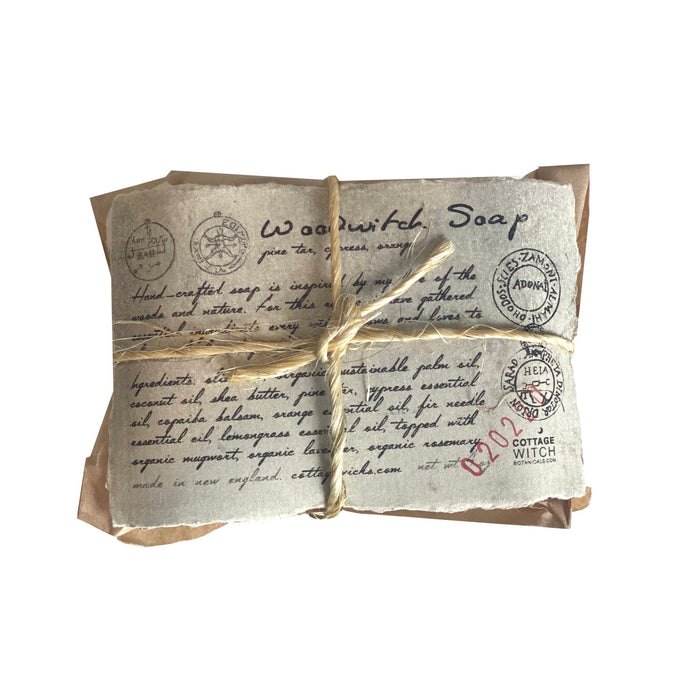 Woodwitch Soap
pine tar, cypress, orange
Hand-crafted soap is inspired by my love of the
woods and nature. For this have gathered
ingredients every and loves to
Ingredients: organic sustainable palm oil,
coconut oil, shea butter, pine tar, cypress essential
oil, copaiba balsam, orange essential oil, fir needle
essential oil, lemongrass essential oil, topped with
organic mugwort, organic lavender, organic rosemary
made in new england. cottagewicks.com net wt
ZAMONI ALMAHI
ADONAI
HEIA
02021
COTTAGE
WITCH
BOTANICALS.COM